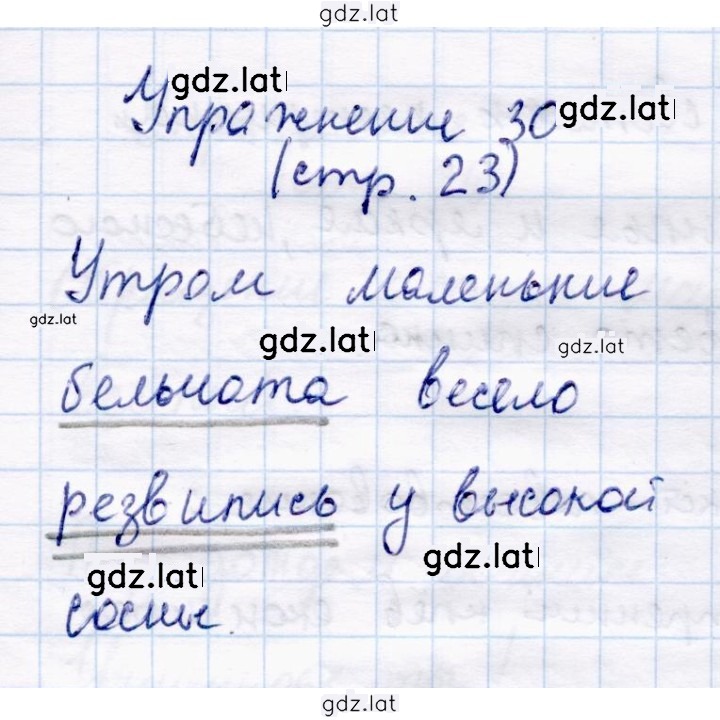 gdz.lat
gdz.lat
Упражнение 30
gdz.lat
(стр. 23)
Утром маленькие
gdz.lat
gdz.lat
gdz.lat
бельчата весело
резвились у высокой
gdz.lat
gdz.lat
сосны.
gdz.lat